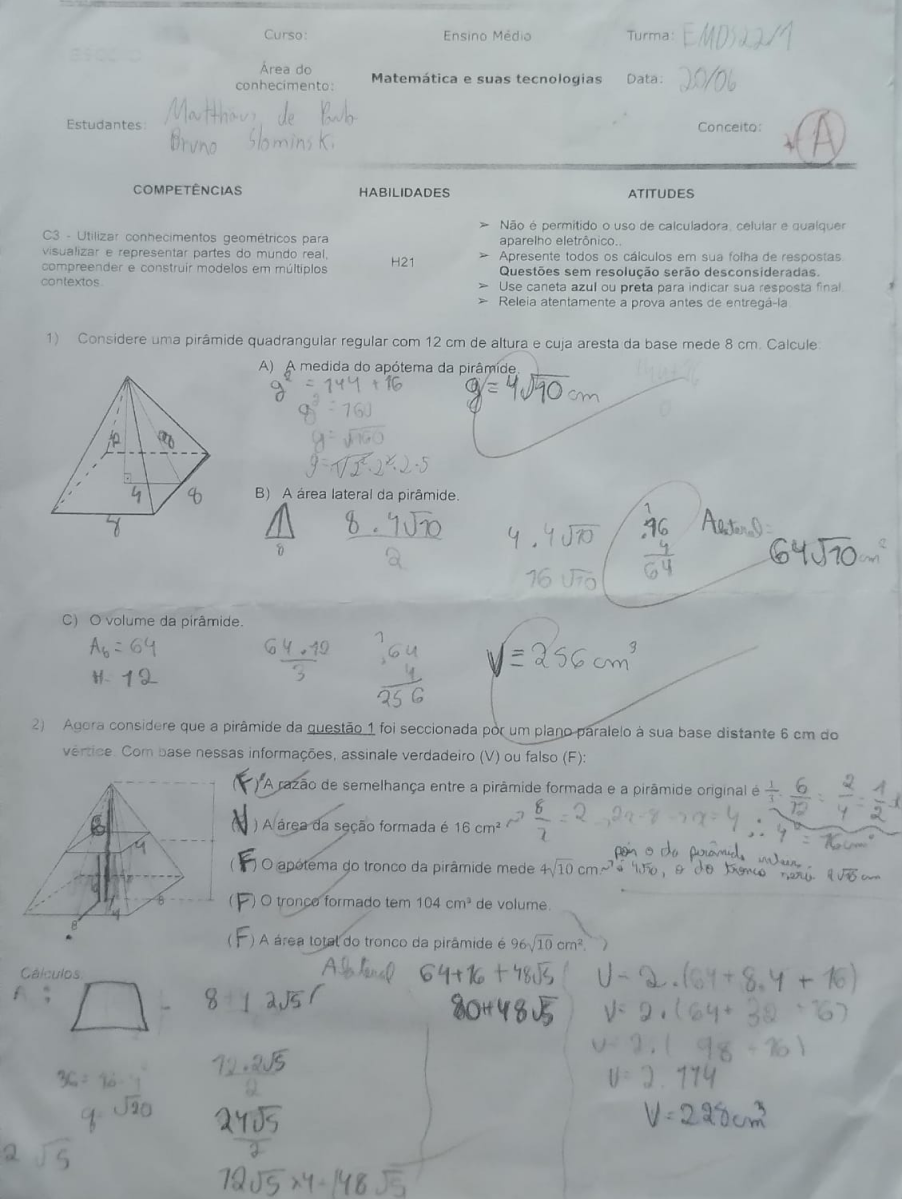 Curso: Ensino Médio Turma: EMDS22/1
Área do conhecimento: Matemática e suas tecnologias Data: 20/06
Estudantes: Matthaus de Paula
Bruno Slominski
Conceito: A
COMPETÊNCIAS HABILIDADES ATITUDES
C3 - Utilizar conhecimentos geométricos para
visualizar e representar partes do mundo real,
compreender e construir modelos em múltiplos
contextos.
H21
➢ Não é permitido o uso de calculadora, celular e qualquer
aparelho eletrônico..
➢ Apresente todos os cálculos em sua folha de respostas.
Questões sem resolução serão desconsideradas.
➢ Use caneta azul ou preta para indicar sua resposta final.
➢ Releia atentamente a prova antes de entregá-la
1) Considere uma pirâmide quadrangular regular com 12 cm de altura e cuja aresta da base mede 8 cm. Calcule:
A) A medida do apótema da pirâmide.
g² = 144 + 16
g² = 160
g = √160
g = √2²·2²·2·5
g = 4√10 cm
12
4
8
8
B) A área lateral da pirâmide.
8
8 . 4√10
2
4 . 4√10
16√10
1
.16
4
64
Alateral =
64√10 cm²
C) O volume da pirâmide.
Ab = 64
H = 12
64 . 12
3
1
.64
4
256
V = 256 cm³
2) Agora considere que a pirâmide da questão 1 foi seccionada por um plano paralelo à sua base distante 6 cm do
vértice. Com base nessas informações, assinale verdadeiro (V) ou falso (F):
(F) A razão de semelhança entre a pirâmide formada e a pirâmide original é 1/3. 6/12 = 2/4 = 1/2
(V) A área da seção formada é 16 cm² 8/x = 2 2x = 8 x = 4 ∴ 4² = 16 cm²
(F) O apótema do tronco da pirâmide mede 4√10 cm pois o da pirâmide
é 4√10, o do tronco
(F) O tronco formado tem 104 cm³ de volume.
(F) A área total do tronco da pirâmide é 96√10 cm².
6
4
4
8
8
Cálculos:
A lateral
64 + 16 + 48√5
80 + 48√5
12 . 2√5
2
24√5
2
12√5 x 4 = 48√5
√20
2√5
V = 2 . (64 + 8.4 + 16)
V = 2 . (64 + 32 + 16)
V = 2 . (98 + 16)
V = 2 . 114
V = 228 cm³